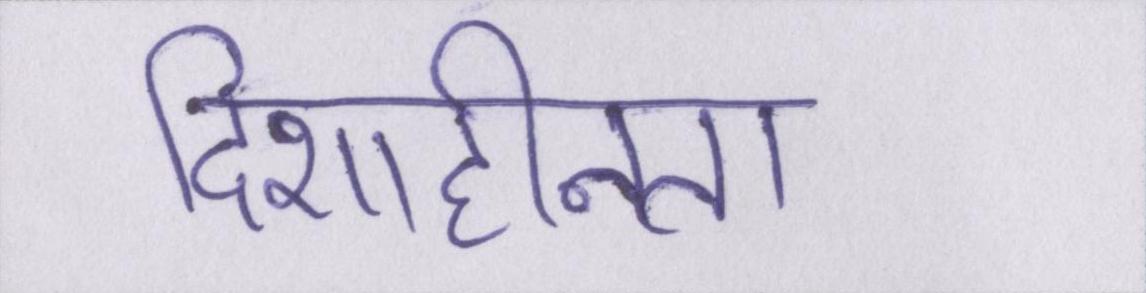 दिशाहीनता